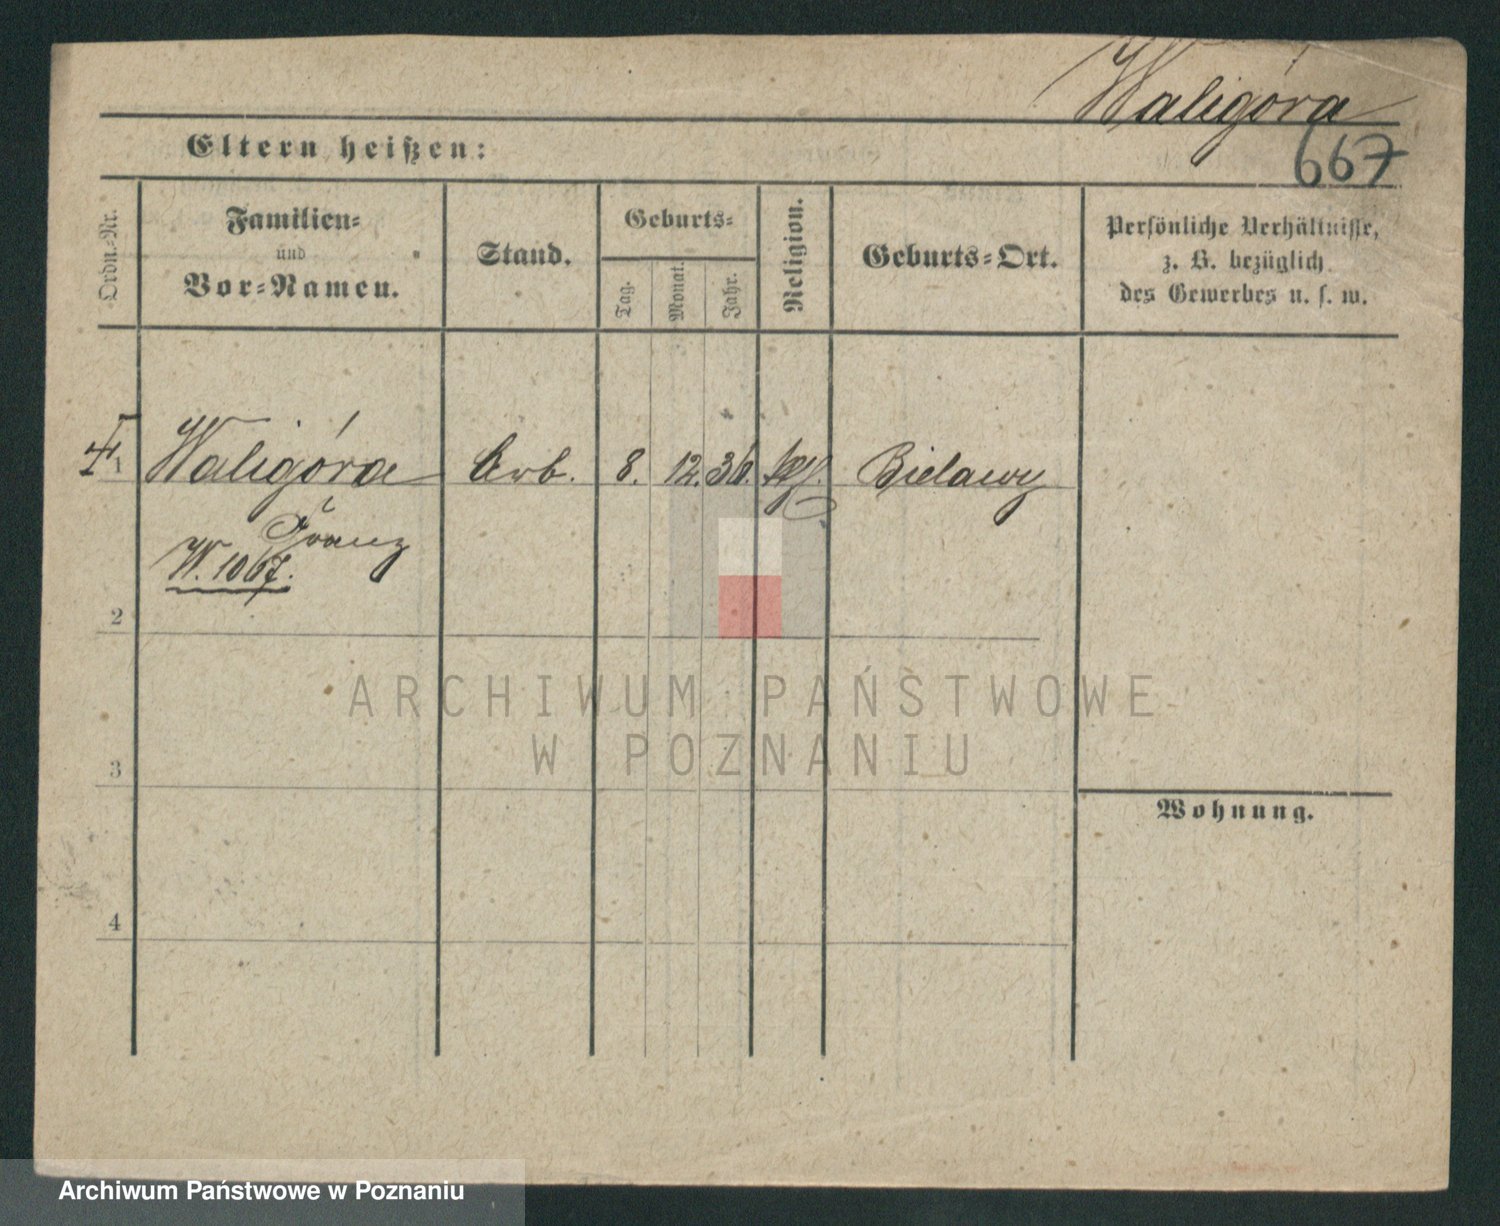 Waligóra
667
Eltern heißen:
Ordn.-Nr.
Familien-
und
Vor-Namen.
Stand.
Geburts-
Tag.
Monat.
Jahr.
Religion.
Geburts-Ort.
Persönliche Verhältnisse,
z. B. bezüglich
des Gewerbes u. s. w.
1 Waligóra Arb. 8. 12. 36. Bielawy
Franz
W. 1067.
2
3
4
Wohnung.
ARCHIWUM PAŃSTWOWE
W POZNANIU
Archiwum Państwowe w Poznaniu